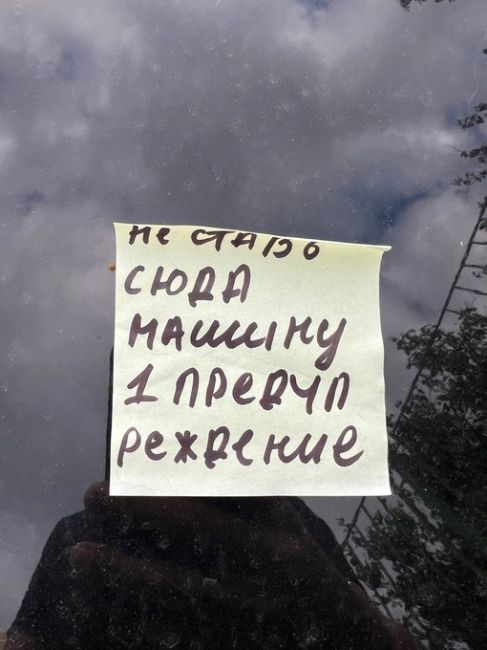 не ставь
сюда
машину
1 предуп
реждение